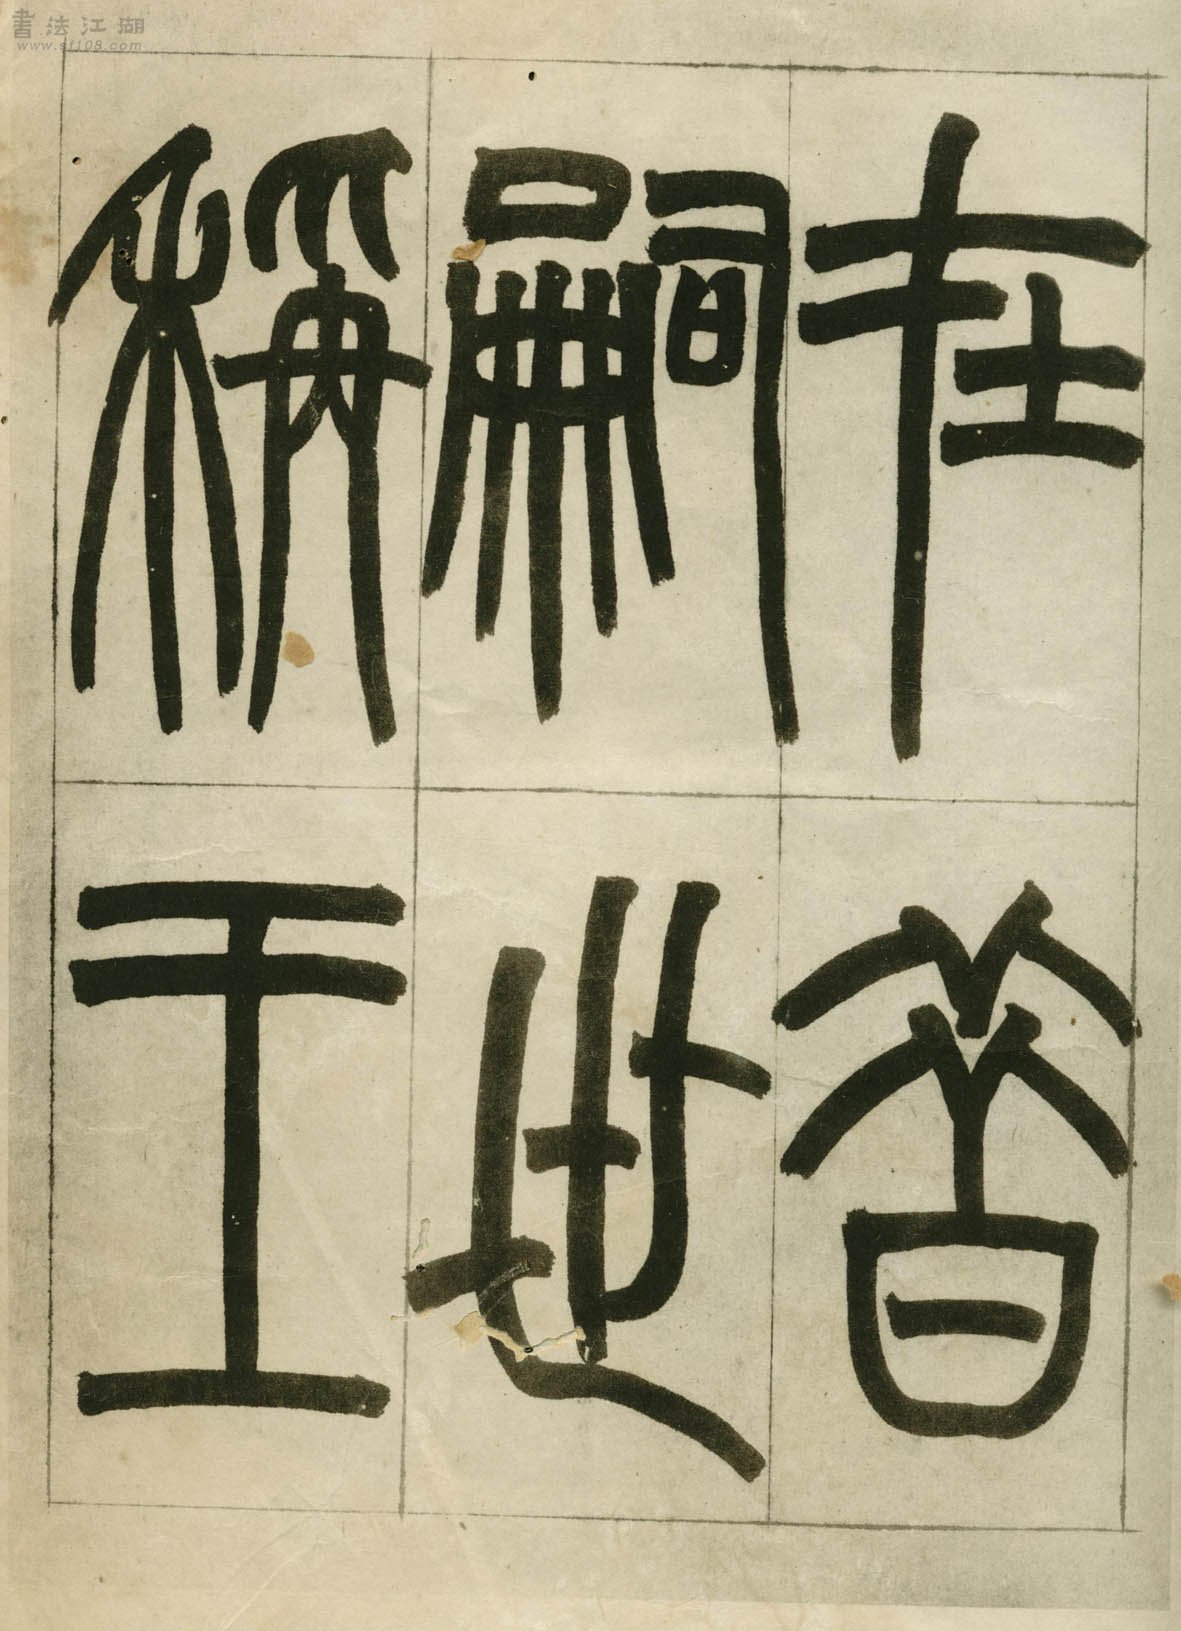 在昔
嗣世
稱王
書法江湖
www.sf108.com